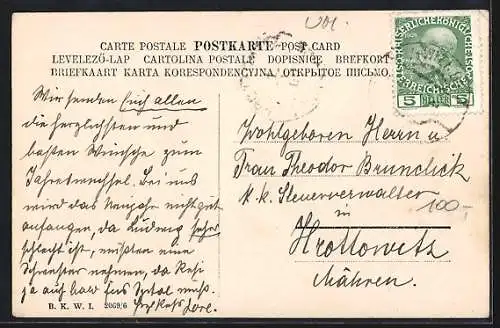 Uol.
CARTE POSTALE POSTKARTE POST CARD
LEVELEZŐ-LAP CARTOLINA POSTALE DOPISNICE BREFKORT
BRIEFKAART KARTA KORESPONDENCYJNA ОТКРЫТОЕ ПИСЬМО
5 HELLER 5
Wir senden Euch allen
die herzlichsten und
besten Wünsche zum
Jahreswechsel. Bei uns
wird das Neujahr nicht gut
anfangen, da Ludwig sehr
schlecht ist, müßten eine
Schwester nehmen, da Resi
ja auch bald ins Spital muß.
B. K. W. I. 2069/6
Wohlgeboren Herrn u
Frau Theodor Brunclick
k. k. Steuerverwalter
in
100.-
Hrottowitz
Mähren.